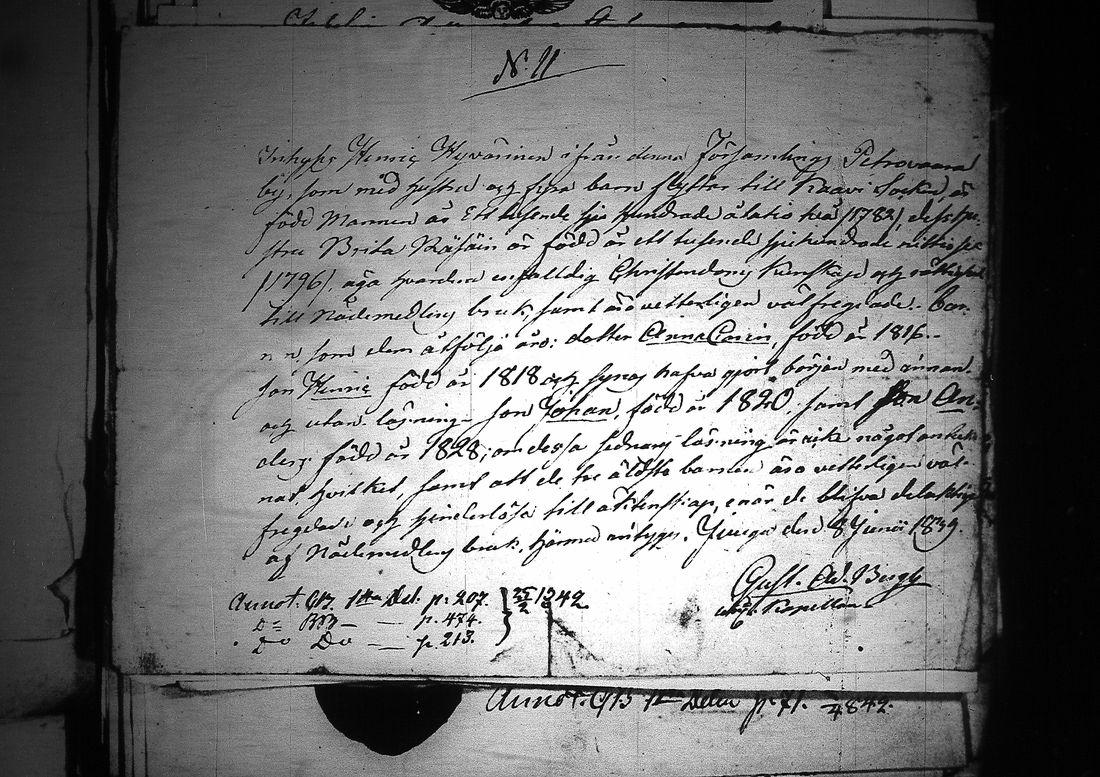 N. 11
Inhyses Henric Hyvärinen ifrån denna Församlings Petrovaara
by, som med hustru och fyra barn flyttar till Kaavi Socken, är
född Mannen år Ett tusende sju hundrade åttatio två /1782/, dess hu-
stru Brita Räsäin är född år ett tusende sjuhundrade nittio sex
/1796/ äga hvardera enfalldig Christendoms Kunskap och rättighet
till Nådemedlens bruk, samt äro vetterligen välfregdade. Bar-
nen, som dem åtfölja äro: dotter Anna Carin, född år 1816 -
Son Henric född år 1818 och synas hafva gjort början med innan
och utan läsning - Son Johan, född år 1820, samt Son An-
ders född år 1828; om dessa sednares läsning är icke något anteck-
nat hvilket, samt att de tre äldsta barnen äro vetterligen väl-
fregdade och hinderlösa till äktenskap, enär de blifva delaktige
af Nådemedlens bruk, härmed intygas. Juuga den 8 Junii 1839.
Gust. Ad. Bergh
Kapellan
Annot. C/B 1sta Del. p. 207. } 25/2 1842
Do BB — — p. 474.
Do Do — p. 213.
Annot. C/B 1sta Delen p. 71. 1842.